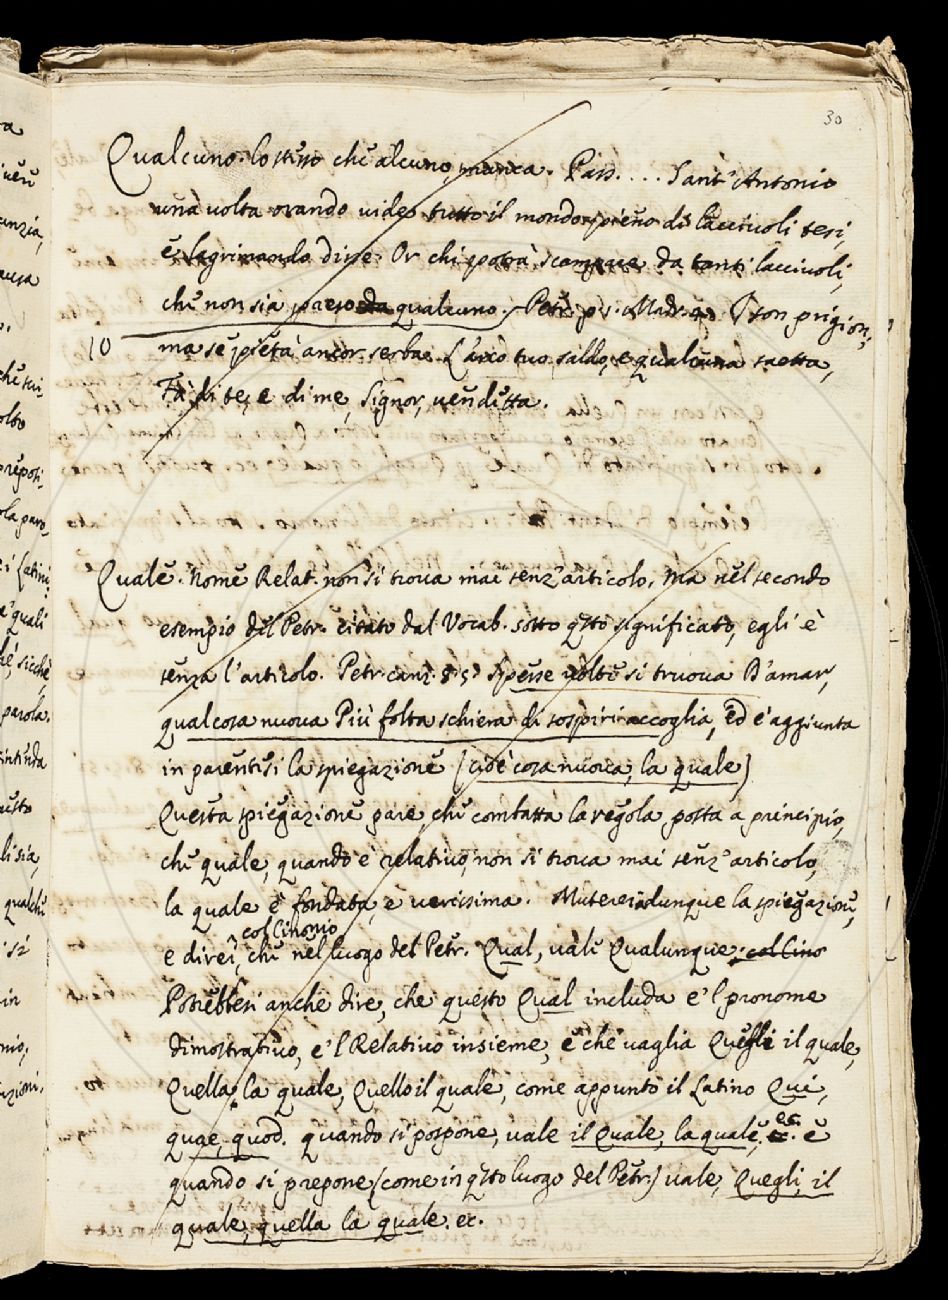 30
Qualcuno. lo stesso che alcuno, manca. Pass. . . . Sant' Antonio
una volta orando vide tutto il mondo pieno di lacciuoli tesi,
e lagrimando disse: Or chi potrà scampare da tanti lacciuoli,
che non sia preso da qualcuno. Petr. p. 1. Madr. 4. I' son prigion;
10 ma se pietà ancor serba L'arco tuo saldo, e qualcuna saetta,
Fà di te, e di me, Signor, vendetta.
Quale. Nome Relat. non si trova mai senz'articolo. Ma nel secondo
esempio del Petr. citato dal Vocab. sotto q.sto significato, egli è
senza l'articolo. Petr. canz. 8. 5. Spesse volte si truova D'amar,
qual cosa nuova Più folta schiera di sospiri accoglia, ed è aggiunta
in parentesi la spiegazione (cioè cosa nuova, la quale)
Questa spiegazione pare che combatta la regola posta a principio,
che quale, quando è relativo, non si trova mai senz'articolo,
la quale è fondata, e verissima. Muterei dunque la spiegazione,
col Cinonio
e direi, che nel luogo del Petr. Qual, vale Qualunque; col Cino
Potrebbesi anche dire, che questo Qual includa e'l pronome
dimostrativo, e'l Relativo insieme, e che vaglia Quegli il quale,
Quella la quale, Quello il quale, come appunto il Latino Qui,
quae, quod. quando si pospone, vale il Quale, la quale, ec. e
quando si prepone (come in q.sto luogo del Petr.) vale, Quegli, il
quale, quella la quale. ec.